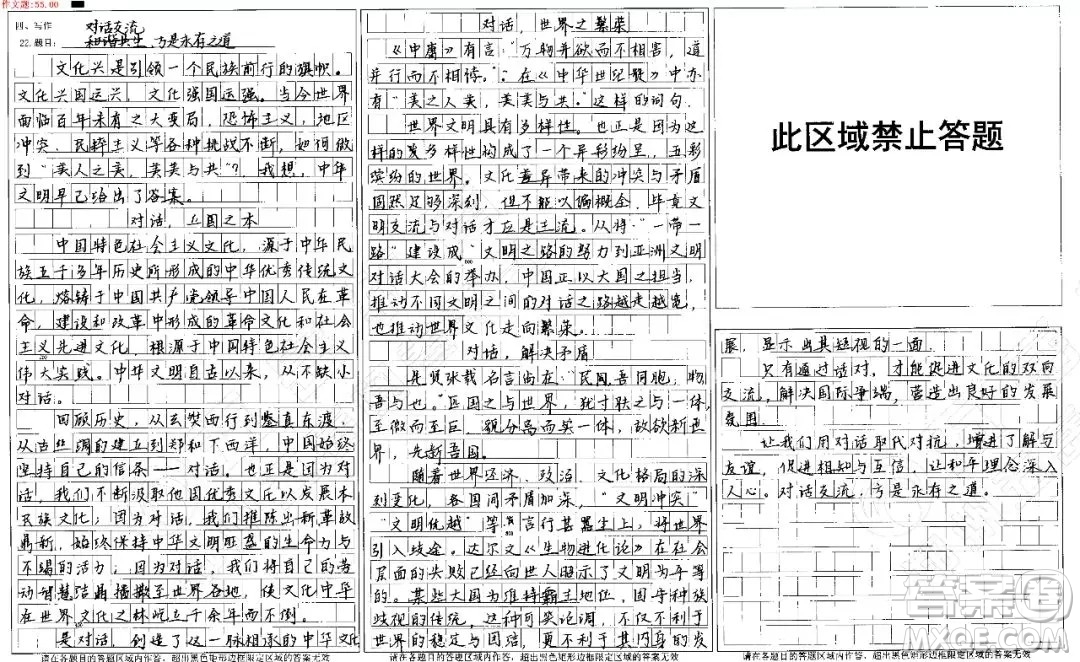 作文题:55.00
四、写作
对话交流
22.题目: 和谐共生,方是永存之道
文化兴是引领一个民族前行的旗帜。
文化兴国运兴,文化强国运强。当今世界
面临百年未有之大变局,恐怖主义,地区
冲突、民粹主义等各种挑战不断,如何做
到“美人之美,美美与共”?我想,中华
文明早已给出了答案。
对话,立国之本
中国特色社会主义文化,源于中华民
族五千多年历史所形成的中华优秀传统文
化,熔铸于中国共产党领导中国人民在革
命,建设和改革中形成的革命文化和社会
主义先进文化,根源于中国特色社会主义
伟大实践。中华文明自古以来,从不缺小
对话。
回顾历史,从玄奘西行到鉴真东渡,
从古丝绸的建立到郑和下西洋,中国始终
坚持自己的信条——对话。也正是因为对
话,我们不断汲取他国优秀文化以发展本
民族文化;因为对话,我们推陈出新革故
鼎新,始终保持中华文明旺盛的生命力与
不竭的活力;因为对话,我们将自己的劳
动智慧结晶播撒至世界各地,使文化中华
在世界文化之林屹立千余年而不倒。
是对话,创造了这一脉相承的中华文化
请在各题目的答题区域内作答,超出黑色矩形边框限定区域的答案无效
对话,世界之繁荣
《中庸》有言:“万物并欲而不相害,道
并行而不相悖。”;在《中华世纪歌》中亦
有“美之人美,美美与共。”这样的词句.
世界文明具有多样性。也正是因为这
样的多样性构成了一个异彩纷呈,五彩
缤纷的世界。文化差异带来的冲突与矛盾
固然足够深刻,但不能以偏概全,毕竟文
明交流与对话才应是主流。从将“一带一
路”建设成 文明之路的努力到亚洲文明
对话大会的举办,中国正以大国之担当,
推动不同文明之间的对话之路越走越宽,
也推动世界文化走向繁荣。
对话,解决矛盾
先贤张载名言尚在:“民同吾同胞,物
吾与也。”吾国之与世界,犹寸肤之与一体,
至微而至巨,貌分为而英一体,故欲新世
界,先新吾国。
随着世界经济、政治、文化格局的深
刻变化,各国间矛盾加深,“文明冲突”
“文明优越”等言行甚嚣尘上,将世界
引入歧途。达尔文《生物进化论》在社会
层面的失败已经向世人昭示了文明为平等
的。某些大国为维持霸主地位,固守种族
歧视的传统,这种可笑论调,不仅不利于
世界的稳定与团结,更不利于其内身的发
请在各题目的答题区域内作答,超出黑色矩形边框限定区域的答案无效
此区域禁止答题
展,显示出其短视的一面.
只有通过话对,才能促进文化的双向
交流,解决国际争端,营造出良好的发展
氛围.
让我们用对话取代对抗,增进了解与
友谊,促进相知与互信,让和平理念深入
人心。对话交流,方是永存之道。
答案圈
MXQE.COM
请在各题目的答题区域内作答,超出黑色矩形边框限定区域的答案无效